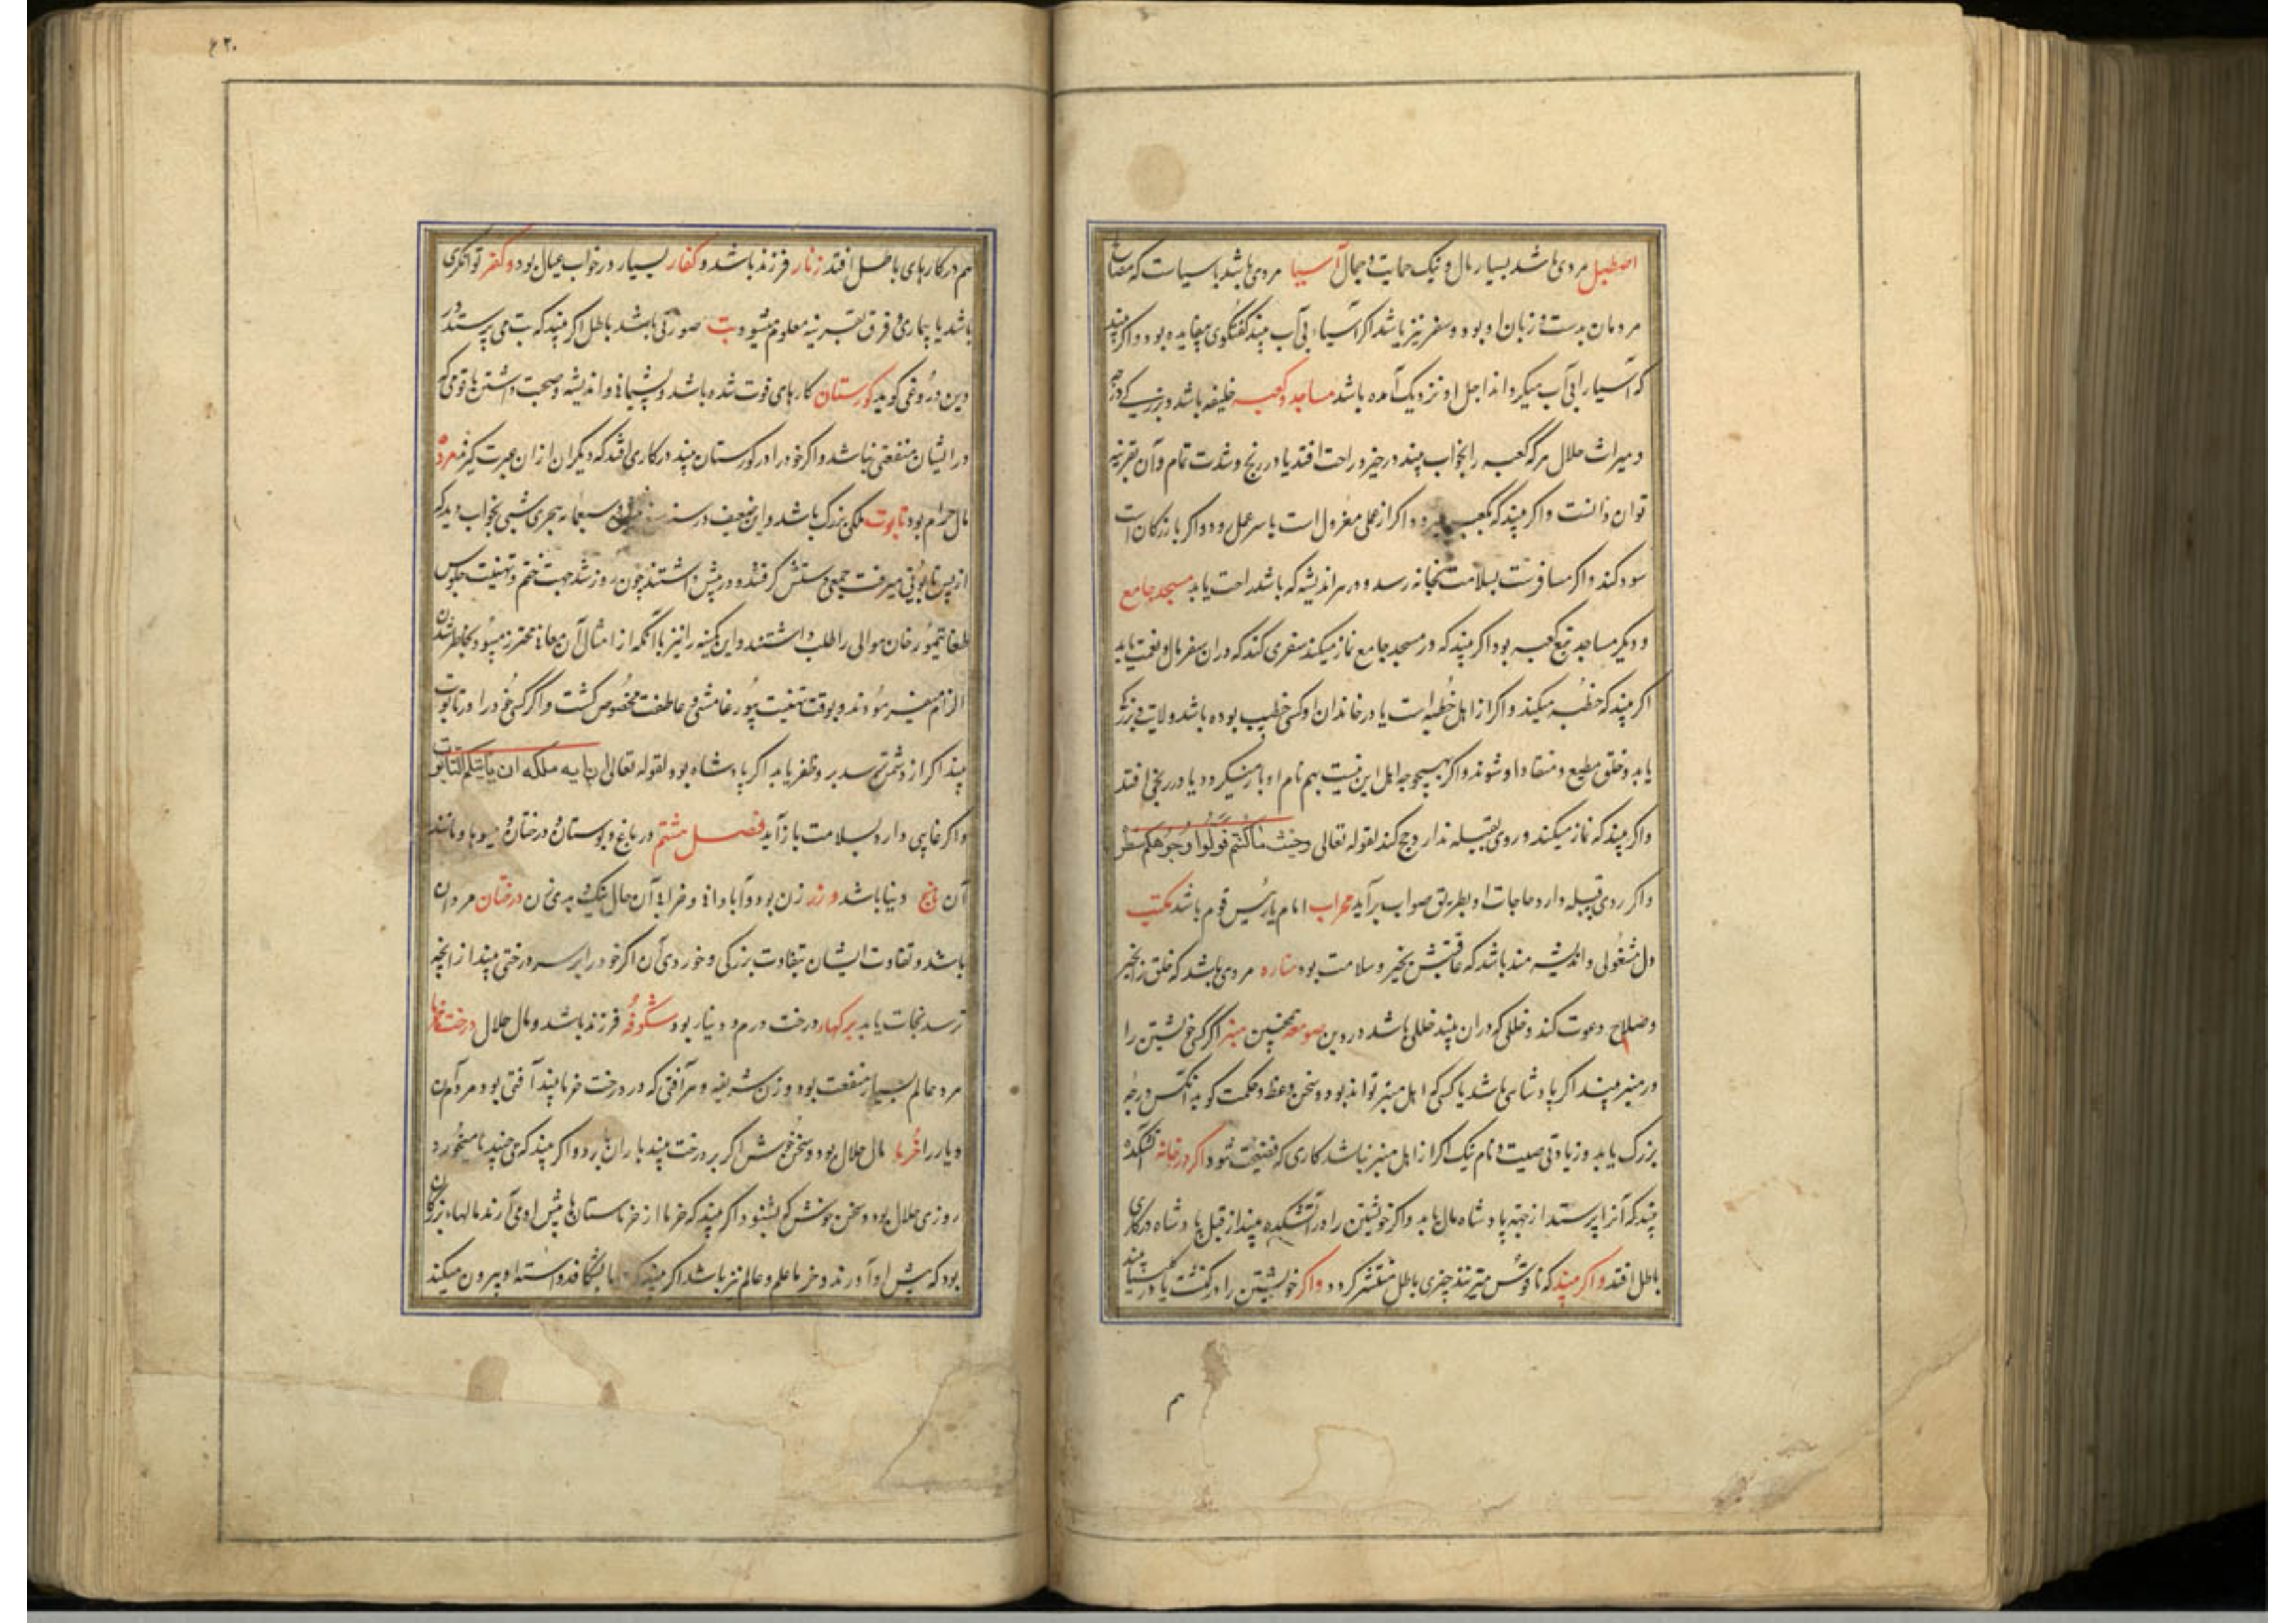 اصطبل مردی باشد بسیار مال و نیک حمایت و جمال آسیا مردی باشد با سیاست که مصالح
مردمان بدست و زبان او بود و سفر نیز باشد اگر آسیاء بی آب بیند گفتگوی بیفایده بود و اگر بیند
که آسیا را بی آب میگرداند اجل او نزدیک آمده باشد مساجد و کعبه خلیفه باشد و بزرگی
و میراث حلال هر که کعبه را بخواب بیند در خیر و راحت افتد یا در رنج و شدت تمام و آن بقرینه
توان دانست و اگر بیند که بکعبه میرود اگر از عملی معزول است با سر عمل رود و اگر بازرگان است
سود کند و اگر مسافرست بسلامت بخانه رسد و در هر اندیشه که باشد راحت یابد مسجد جامع
و دیگر مساجد تبع کعبه بود اگر بیند که در مسجد جامع نماز میکند سفری کند که در آن سفر مال و نعمت یابد
اگر بیند که خطبه میکند و اگر از اهل خطبه است یا در خاندان او کسی خطیب بوده باشد ولایتی بزرگ
یابد و خلق مطیع و منقاد او شوند و اگر بهیچوجه اهل این نیست بهم نام او باز میگردد یا در رنجی افتد
و اگر بیند که نماز میکند و روی بقبله ندارد حج کند لقوله تعالی وحیث ما کنتم فولوا وجوهکم شطره
و اگر روی بقبله دارد حاجات او بطریق صواب برآید محراب امام یا رئیس قوم باشد مکتب
دل مشغولی و اندیشه مند باشد که عاقبتش بخیر و سلامت بود مناره مردی باشد که خلق را بخیر
و صلاح دعوت کند و خللی که در آن بیند خللی باشد در دین صومعه همچنین منبر اگر کسی خویشتن را
در منبر بیند اگر پادشاهی باشد یا کسی که اهل منبر تواند بود و سخن وعظ و حکمت گوید آنکس درجه
بزرگ یابد و زیادتی صیت و نام نیک اگر از اهل منبر نباشد کاری که فضیحت شود اگر در خانه آتشکده
بیند که آنرا پرستد از جهة پادشاه مال یابد و اگر خویشتن را در آتشکده بیند از قبل پادشاه در کاری
باطل افتد و اگر بیند که ناقوس میزنند چیزی باطل منتشر گردد و اگر خویشتن را در کنشت یا در کلیسیا بیند
هم
۴۲۰
هم در کارهای باطل افتد زنار فرزند باشد و کفار بسیار در خواب عیال بود و کفر توانگری
باشد یا بیماری و فرق بقرینه معلوم میشود بت صورتی باشد باطل اگر بیند که بت می پرستد در
دین دروغی گوید گورستان کارهای فوت شده باشد و پشیمانی و اندیشه و صحبت داشتن با قومی که
در ایشان منفعتی نباشد و اگر خود را در گورستان بیند در کاری افتد که دیگران از آن عبرت گیرند مرده
مال حرام بود تابوت ملکی بزرگ باشد و این ضعیف در سنه وسبعمایه هجری شبی بخواب دید که
از پس تابوتی میرفت جمعی دستش گرفتند و در پیش داشتند چون روز شد جهت ختم و تهنیت جلوس
طغایتیمور خان موالی را طلب داشتند و این کمینه را نیز با آنکه از امثال آن معانی محترز میبود بحاضر شدن
الزام نمودند و بوقت تهنیت عاطفت مخصوص گشت و اگر کسی خود را در تابوت
بیند اگر از دشمن ترسد برو ظفر یابد اگر پادشاه بود لقوله تعالی ان ایه ملکه ان یأتیکم التابوت
و اگر غایبی دارد بسلامت باز آید فصل هشتم در باغ و بوستان و درختان و میوها و مانند
آن باغ دنیا باشد و رز زن بود و آبادانی و خرابی آن حال نیک و بد زن درختان مردان
باشد و تفاوت ایشان بتفاوت بزرگی و خوردی آن اگر خود را بر سر درختی بیند از آنچه
ترسد نجات یابد برگهاء درخت درم و دینار بود شکوفه فرزند باشد و مال حلال درخت خرما
مرد عالم بسیار منفعت بود و زن شریفه و هر آفتی که در درخت خرما بیند آفتی بود مردم آن
دیار را خرما مال حلال بود و سخن خوش اگر بر درخت بیند باران بارد و اگر بیند که می چیند یا میخورد
روزی حلال بود و سخن خوش که بشنود اگر بیند که خرما از خرماستان ها پیش او می آرند مالهاء بزرگان
بود که پیش او آورند و خرما علم و عالم نیز باشد اگر بیند که خرما بشکافد و استه او بیرون میکند